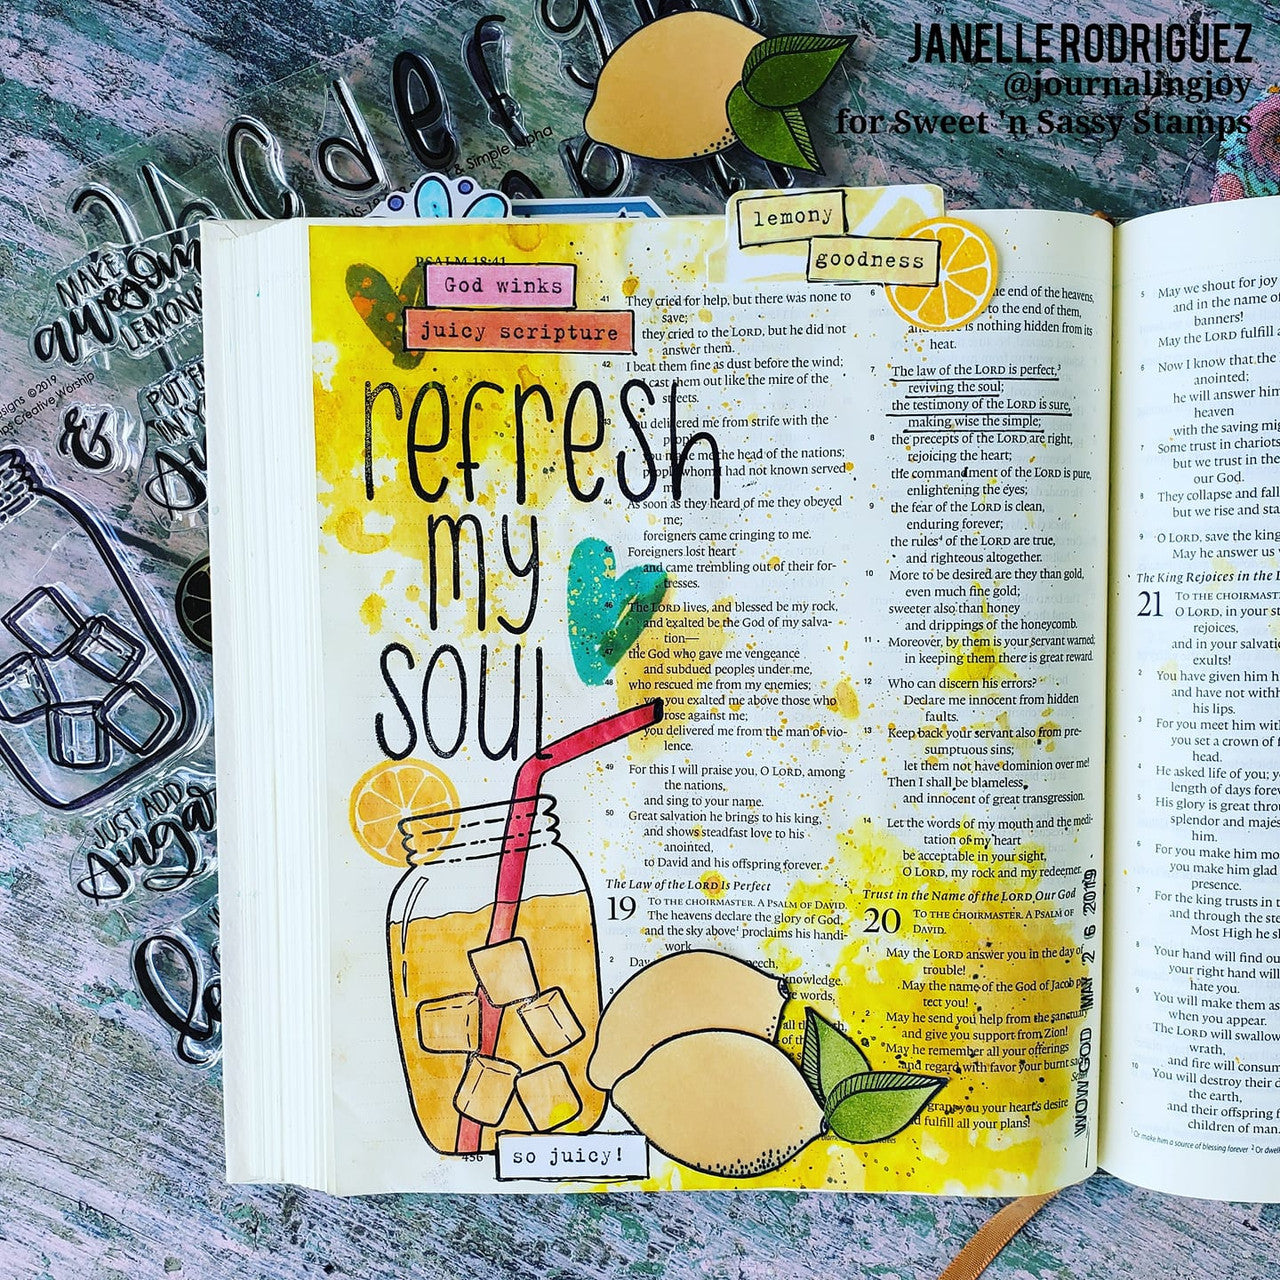 JANELLE RODRIGUEZ
@journalingjoy
for Sweet 'n Sassy Stamps
& Simple Alpha
MAKE
awesome
LEMONA
signs © 2019
ps Creative Worship
&
JUST ADD
Sugar
lemony
goodness
PSALM 18:41
God winks
juicy scripture
refresh
my
soul
so juicy!
456
41 They cried for help, but there was none to
save;
they cried to the LORD, but he did not
answer them.
42 I beat them fine as dust before the wind;
I cast them out like the mire of the
streets.
43 You delivered me from strife with the
you made me the head of the nations;
people whom I had not known served
44 As soon as they heard of me they obeyed
me;
foreigners came cringing to me.
45 Foreigners lost heart
and came trembling out of their for-
tresses.
46 The LORD lives, and blessed be my rock,
and exalted be the God of my salva-
tion—
47 the God who gave me vengeance
and subdued peoples under me,
48 who rescued me from my enemies;
yes, you exalted me above those who
rose against me;
you delivered me from the man of vio-
lence.
49 For this I will praise you, O LORD, among
the nations,
and sing to your name.
50 Great salvation he brings to his king,
and shows steadfast love to his
anointed,
to David and his offspring forever.
The Law of the LORD Is Perfect
19 TO THE CHOIRMASTER. A PSALM OF DAVID.
The heavens declare the glory of God,
and the sky above¹ proclaims his handi-
work.
2 Day speech,
knowledge.
3 words,
6 the end of the heavens,
to the end of them,
and there is nothing hidden from its
heat.
7 The law of the LORD is perfect,³
reviving the soul;
the testimony of the LORD is sure,
making wise the simple;
8 the precepts of the LORD are right,
rejoicing the heart;
the commandment of the LORD is pure,
enlightening the eyes;
9 the fear of the LORD is clean,
enduring forever;
the rules⁴ of the LORD are true,
and righteous altogether.
10 More to be desired are they than gold,
even much fine gold;
sweeter also than honey
and drippings of the honeycomb.
11 Moreover, by them is your servant warned;
in keeping them there is great reward.
12 Who can discern his errors?
Declare me innocent from hidden
faults.
13 Keep back your servant also from pre-
sumptuous sins;
let them not have dominion over me!
Then I shall be blameless,
and innocent of great transgression.
14 Let the words of my mouth and the medi-
tation of my heart
be acceptable in your sight,
O LORD, my rock and my redeemer.
Trust in the Name of the LORD Our God
20 TO THE CHOIRMASTER. A PSALM OF
DAVID.
1 May the LORD answer you in the day of
trouble!
May the name of the God of Jacob pro
tect you!
2 May he send you help from the sanctuary
and give you support from Zion!
3 May he remember all your offerings
and regard with favor your burnt sac
grant you your heart's desire
fulfill all your plans!
WOW GOD MAY 26 2019
5 May we shout for joy
and in the name of
banners!
May the LORD fulfill
6 Now I know that the
anointed;
he will answer him
heaven
with the saving mig
7 Some trust in chariots
but we trust in the
our God.
8 They collapse and fall
but we rise and sta
9 O LORD, save the king
May he answer us
The King Rejoices in the L
21 TO THE CHOIRMASTER.
O LORD, in your s
rejoices,
and in your salvatio
exults!
2 You have given him h
and have not withh
his lips.
3 For you meet him wit
you set a crown of f
head.
4 He asked life of you; y
length of days forev
5 His glory is great throu
splendor and majes
him.
6 For you make him mo
you make him glad
presence.
7 For the king trusts in t
and through the ste
Most High he sh
8 Your hand will find ou
your right hand will
hate you.
9 You will make them as
when you appear.
The LORD will swallow
wrath,
and fire will consum
10 You will destroy their d
the earth,
and their offspring f
children of man.
¹ Or make him a source of blessing forever ² Or dwell